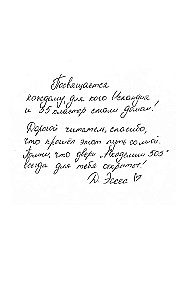 Посвящается
каждому, для кого Исландия
и 35 кластер стали домом!
Дорогой читатель, спасибо,
что прошёл этот путь со мной.
Помни, что двери „Академии 505"
всегда для тебя открыты!
D. Эссса ♡